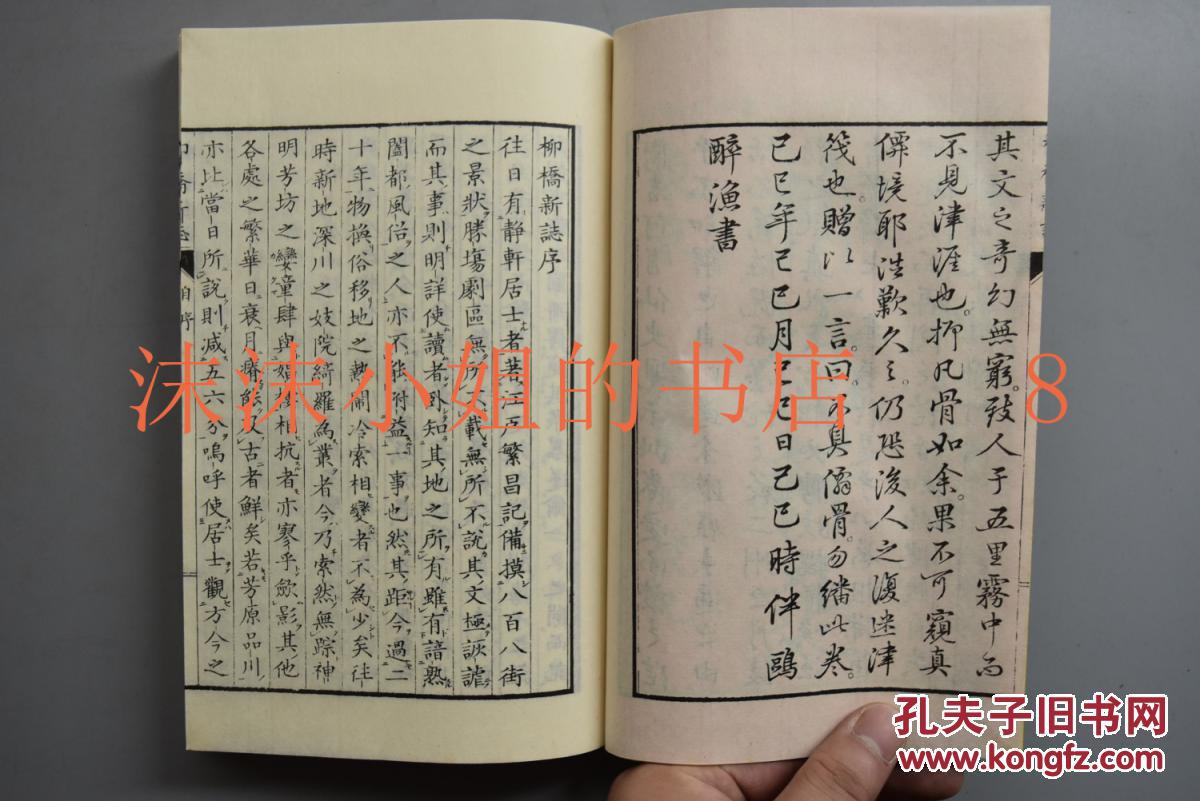 其文之奇幻無窮。致人于五里霧中而
不見津涯也。抑凡骨如余。果不可窺真
僊境耶。浩歎久之。仍恐後人之復迷津
筏也。贈以一言。曰。不具僊骨。勿繙此卷。
己巳年己巳月己巳日己巳時伴鷗
醉漁書
柳橋新誌序
往日有静軒居士者著江戸繁昌記備摸八百八街
之景状勝場劇區無所不載無所不説其文極詼謔
而其事則明詳使讀者卧知其地之所有雖有諳熟
闔都風俗之人亦不能附益一事也然其距今過二
十年物換俗移地之熱鬧冷索相變者不為少矣往
時新地深川之妓院綺羅為叢者今乃索然無踪神
明芳坊之孌童肆與娼樓相抗者亦寥乎歛影其他
各處之繁華日衰月瘠能及古者鮮矣若芳原品川
亦比當日所說則减五六分嗚呼使居士觀方今之
自序
沫沫小姐的书店 8
孔夫子旧书网
www.kongfz.com